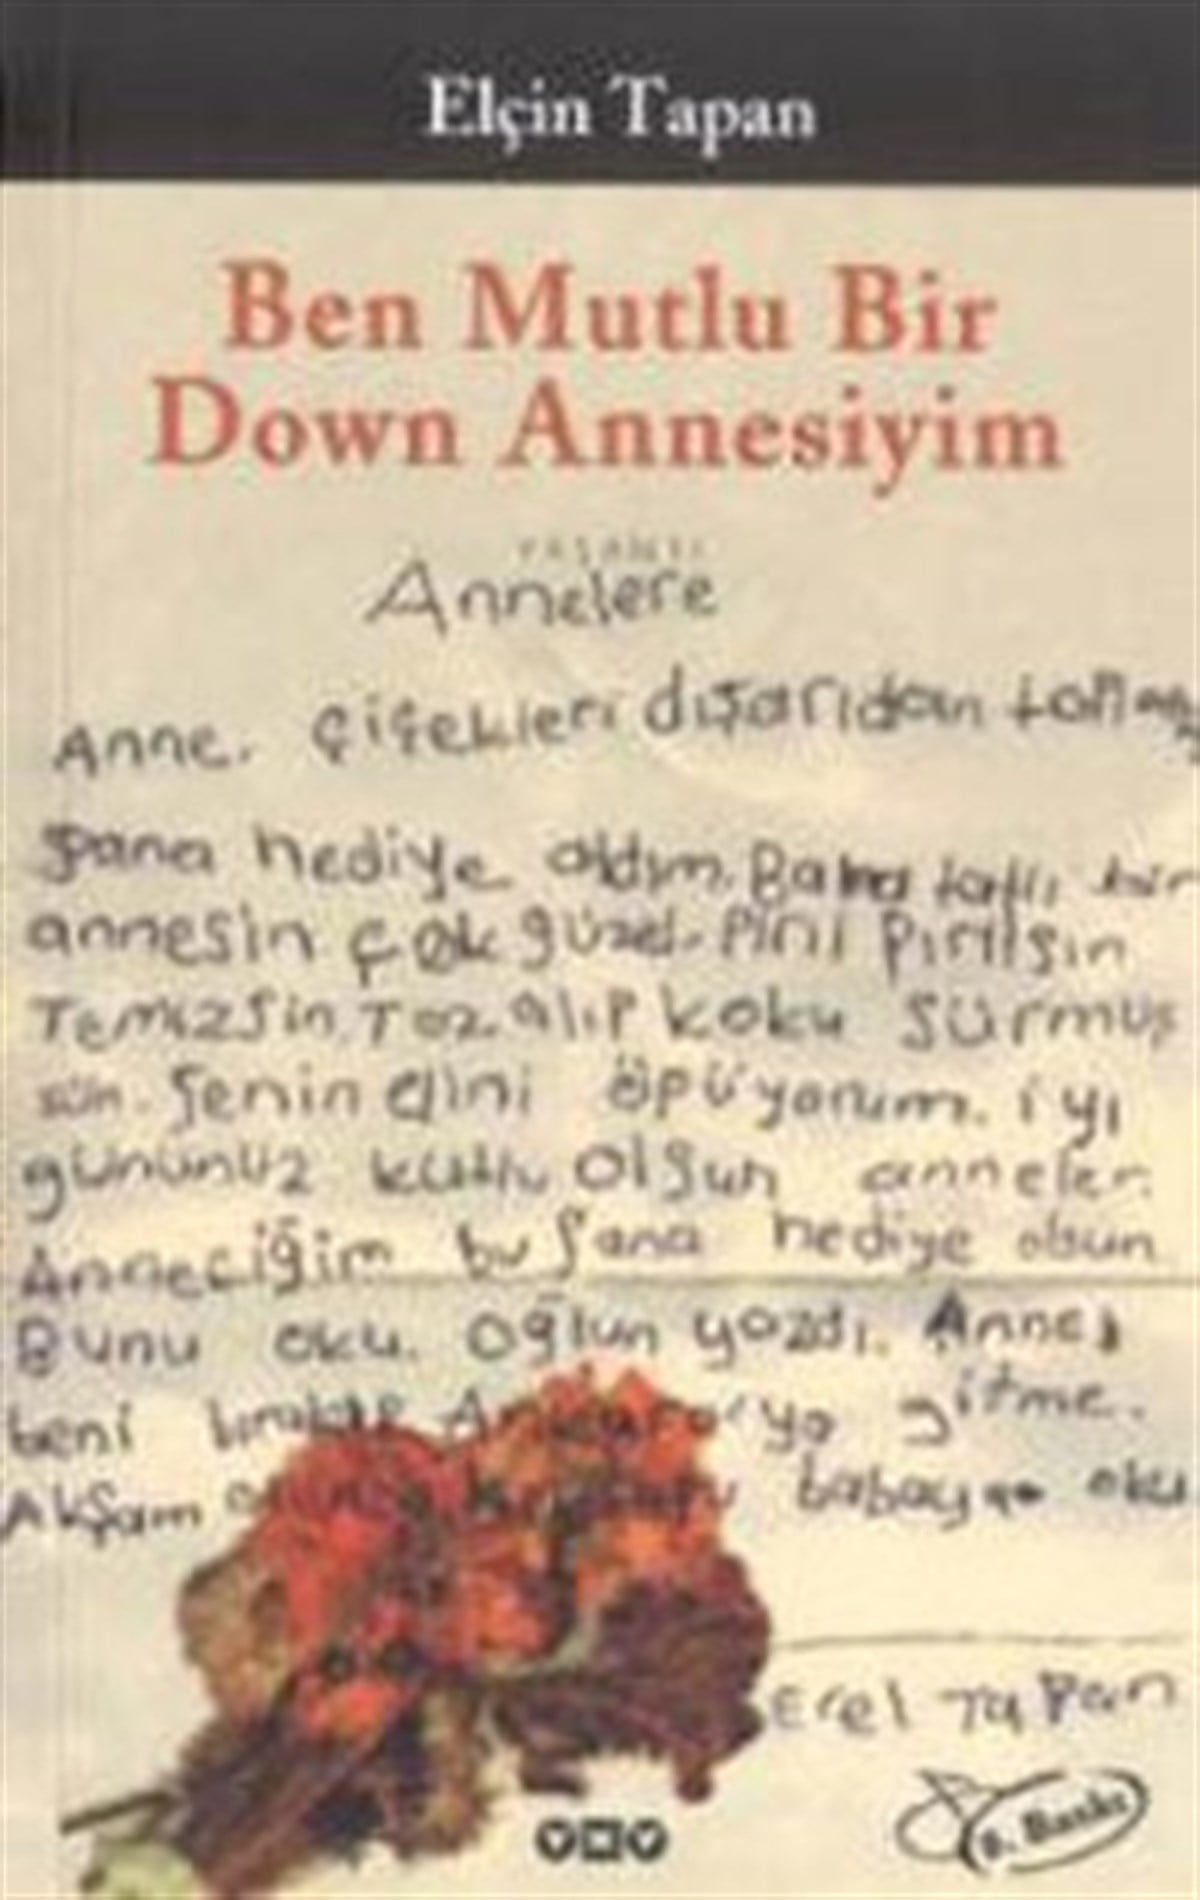 Elçin Tapan
Ben Mutlu Bir
Down Annesiyim
YAŞANTI
Annelere
Anne. Çiçekleri dışarıdan
Şana hediye aldım. Bana tatlı bir
annesin çok güzel. Pini pirilsin
Temizsin. Toz alıp koku sürmüş
sün. Senin elini öpüyorum. iyi
gününüz kutlu olsun anneler.
Anneciğim bu Sana hediye olsun
Bunu oku. Oğlun yazdı. Anne
beni gitme.
Akşam babaya oku
Erel Tapan
YKY
Baskı